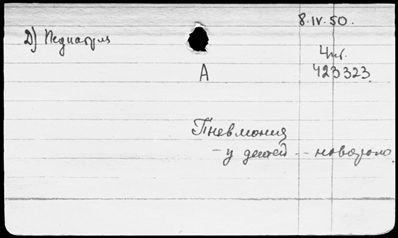 8.IV.50.
Д) Педиатрия
4 шт.
А
423323
Пневмония
- у детей -- новорожд.